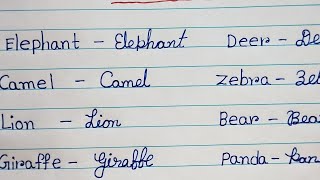 Elephant - Elephant Deer - De
Camel - Camel Zebra - Zeb
Lion - Lion Bear - Bea
Giraffe - Giraffe Panda - Pan